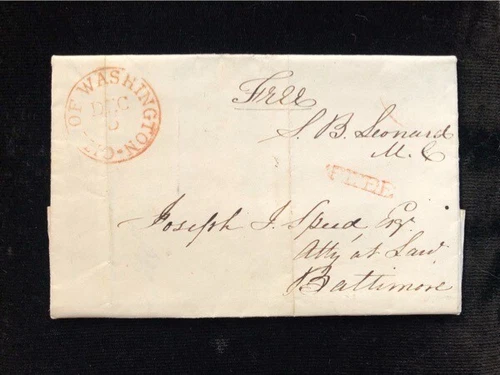 CITY OF WASHINGTON
DEC
Free
S. B. Leonard
M. C
FREE
Joseph J. Speed Esq
Atty at Law
Baltimore